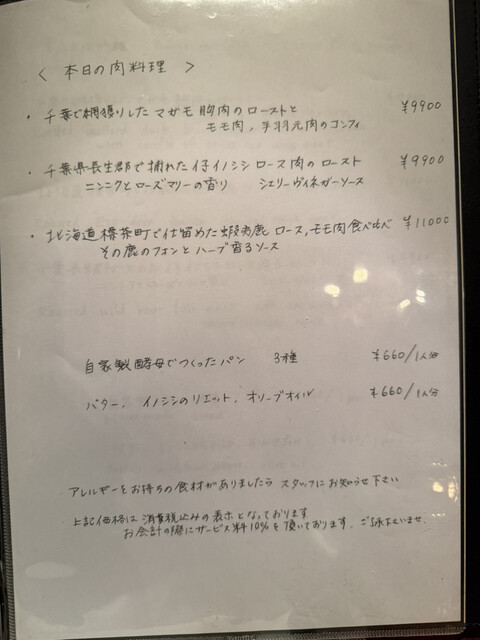 〈 本日の肉料理 〉
・千葉で網張りしたマガモ 胸肉のローストと ¥9900
モモ肉、手羽元肉のコンフィ
・千葉県長生郡で捕れた仔イノシシ ロース肉のロースト ¥9900
ニンニクとローズマリーの香り シェリーヴィネガーソース
・北海道標茶町で仕留めた蝦夷鹿 ロース,モモ肉食べ比べ ¥11000
その鹿のフォンとハーブ香るソース
自家製酵母でつくったパン 3種 ¥660/1人分
バター、イノシシのリエット、オリーブオイル ¥660/1人分
アレルギーをお持ちの食材がありましたら スタッフにお知らせ下さい
上記価格は消費税込みの表示となっております
お会計の際にサービス料10%を頂いております。ご了承下さいませ.